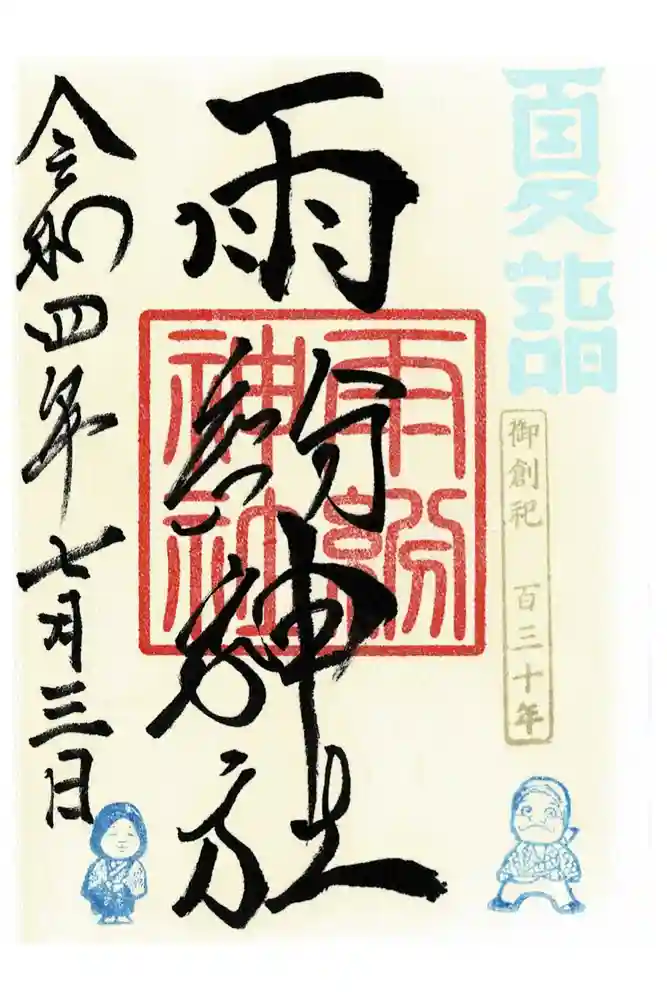 夏詣
御創祀 百三十年
雨紛神社
雨紛
神社
令和四年七月三日